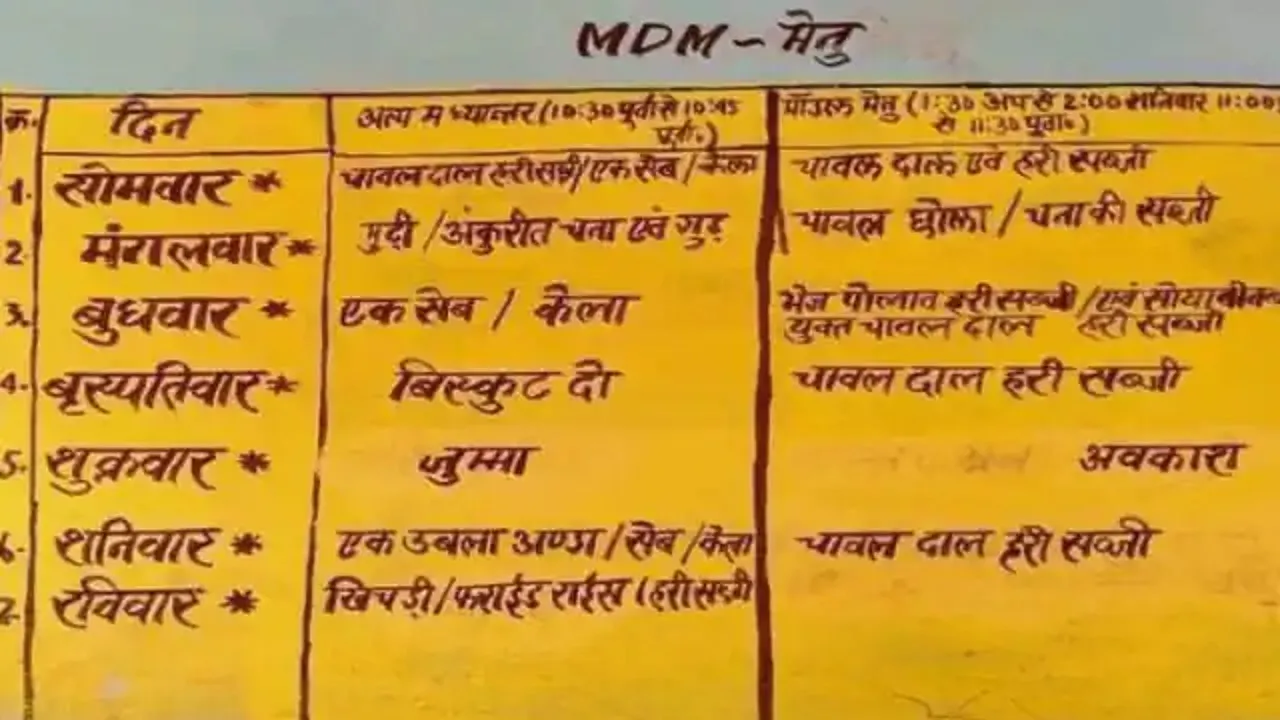 MDM - मेनु
क्र. दिन अल्प मध्यान्तर (10:30 पूर्वा से 10:45 पूर्वा०) मॉडल मेनु (1:30 अप से 2:00 शनिवार 11:00 से 11:30 पूर्वा०)
1. सोमवार * चावल दाल हरी सब्जी/एक सेब/केला चावल दाल एवं हरी सब्जी
2. मंगलवार * मुढ़ी/अंकुरीत चना एवं गुड़ चावल छोला/चना की सब्जी
3. बुधवार * एक सेब / केला भेज पोलाव हरी सब्जी/एवं सोयाबीन
युक्त चावल दाल हरी सब्जी
4. बृस्पतिवार * बिस्कुट दो चावल दाल हरी सब्जी
5. शुक्रवार * जुम्मा अवकाश
6. शनिवार * एक उबला अण्डा/सेब/केला चावल दाल हरी सब्जी
7. रविवार * खिचड़ी/फ्राईड राईस/हरी सब्जी